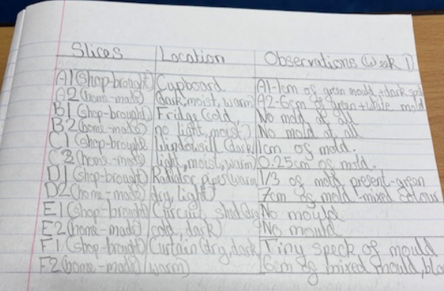 Slices Location Observations (week 1)
A1 (shop-brought) Cupboard A1-1cm of green mould + dark
A2 (home-made) (dark, moist, warm) A2-6cm of green + white mold
B1 (shop-brought) Fridge (cold No mold at all
B2 (home-made) no light, moist) No mold at all.
C1 (shop-brought) 1cm of mold.
C2 (home-made) light, moist, warm) 0.25cm of mold.
D1 (shop-brought) Radiator (warm 1/3 of mold present-green
D2 (home-made) dry, light) 7cm of mold-mixed colour
E1 (shop-brought) No mould
E2 (home-made) cold, dark) No mould
F1 (shop-brought) Curtain (dry, dark Tiny speck of mould
F2 (home-made) warm) 6cm of mixed mould,